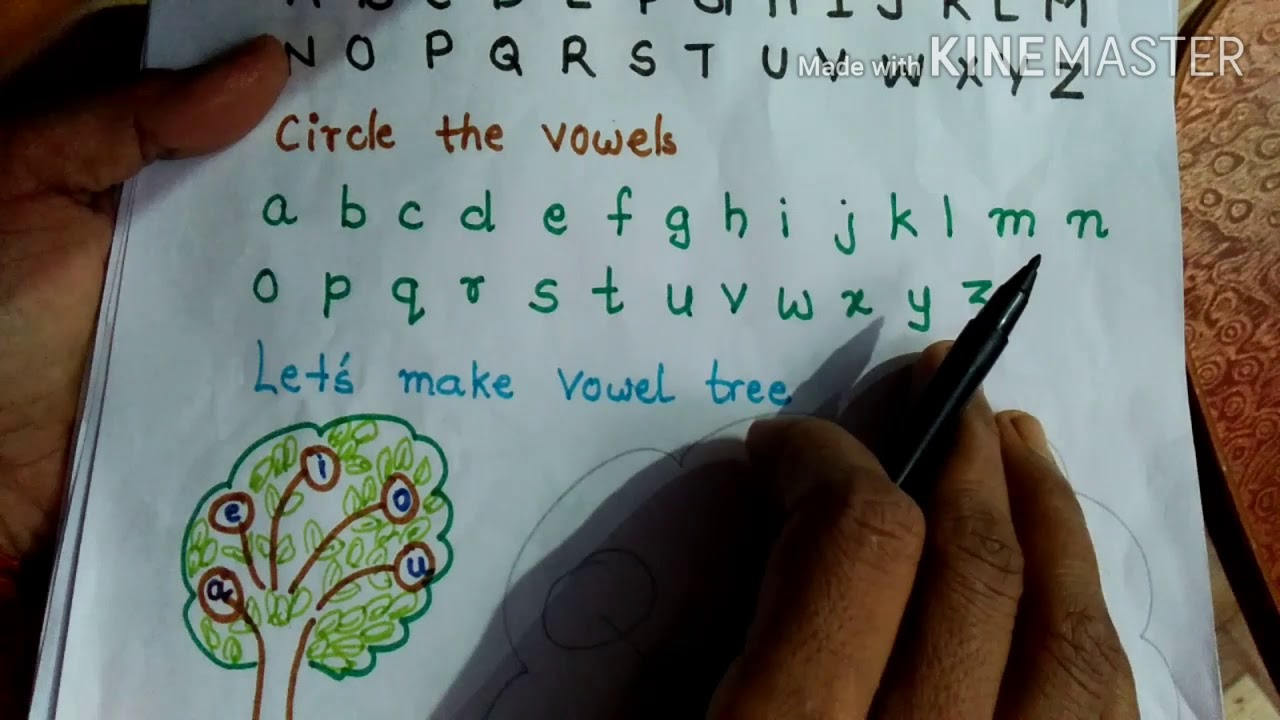 A B C D E F G H I J K L M
N O P Q R S T U V W X Y Z
Made with KINEMASTER
Circle the vowels
a b c d e f g h i j k l m n
o p q r s t u v w x y z
Let's make vowel tree
i
e o
a u